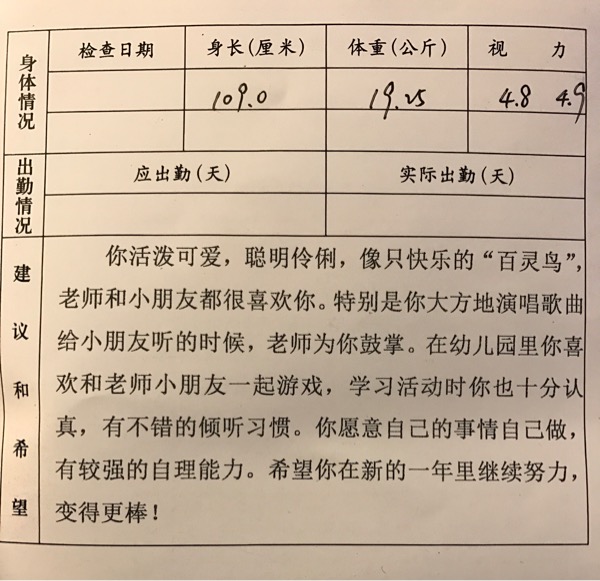 身体情况
检查日期 身长(厘米) 体重(公斤) 视 力
109.0 19.25 4.8 4.9
出勤情况
应出勤(天) 实际出勤(天)
建议和希望
你活泼可爱，聪明伶俐，像只快乐的“百灵鸟”，
老师和小朋友都很喜欢你。特别是你大方地演唱歌曲
给小朋友听的时候，老师为你鼓掌。在幼儿园里你喜
欢和老师小朋友一起游戏，学习活动时你也十分认
真，有不错的倾听习惯。你愿意自己的事情自己做，
有较强的自理能力。希望你在新的一年里继续努力，
变得更棒！